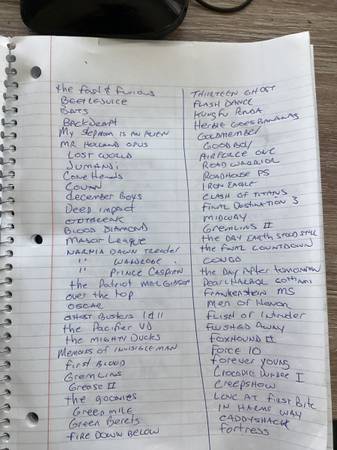 the fast & furious
BEETLEJUICE
BATS
BACKDRAFT
My stepmom is an Alien
MR HOLLAND OPUS
LOST WORLD
JUMANJI
CONE HEADS
CONAN
december Boys
DEEP IMPACT
BLOOD DIAMOND
MAJOR LEAGUE
NARNIA DAWN Treader
" WARDROBE.
" PRINCE CASPIEN
the Patriot MEL GIBSON
over the top
OSCAR
GHOST BUSTERS I & II
the Pacifier VD
the MIGHTY DUCKS
Memoirs of INVISIBLE MAN
FIRST BLOOD
GREMLINS
GREASE II
the goonies
GREEN MILE
Green Berets
FIRE DOWN BELOW
THIRTEEN GHOST
FLASH DANCE
KUNG FU PANDA
HERBIE GOES BANANAS
GOLDMEMBER
GOODBOY
AIRFORCE ONE
ROAD WARRIOR
ROADHOUSE PS
IRON EAGLE
CLASH OF TITANS
FINAL DESTINATION 3
MIDWAY
GREMLINS II
the DAY EARTH STOOD STILL
the FINAL COUNTDOWN
CONGO
the DAY AFTER tomorrow
PEARL HARBOR
FRANKENSTEIN MS
MEN OF HONOR
FLIGHT OF INTRUDER
FLUSHED AWAY
FOXHOUND II
FORCE 10
forever young
CROCODILE DUNDEE I
CREEPSHOW
LOVE AT FIRST BITE
IN HARMS WAY
CADDYSHACK
fortress